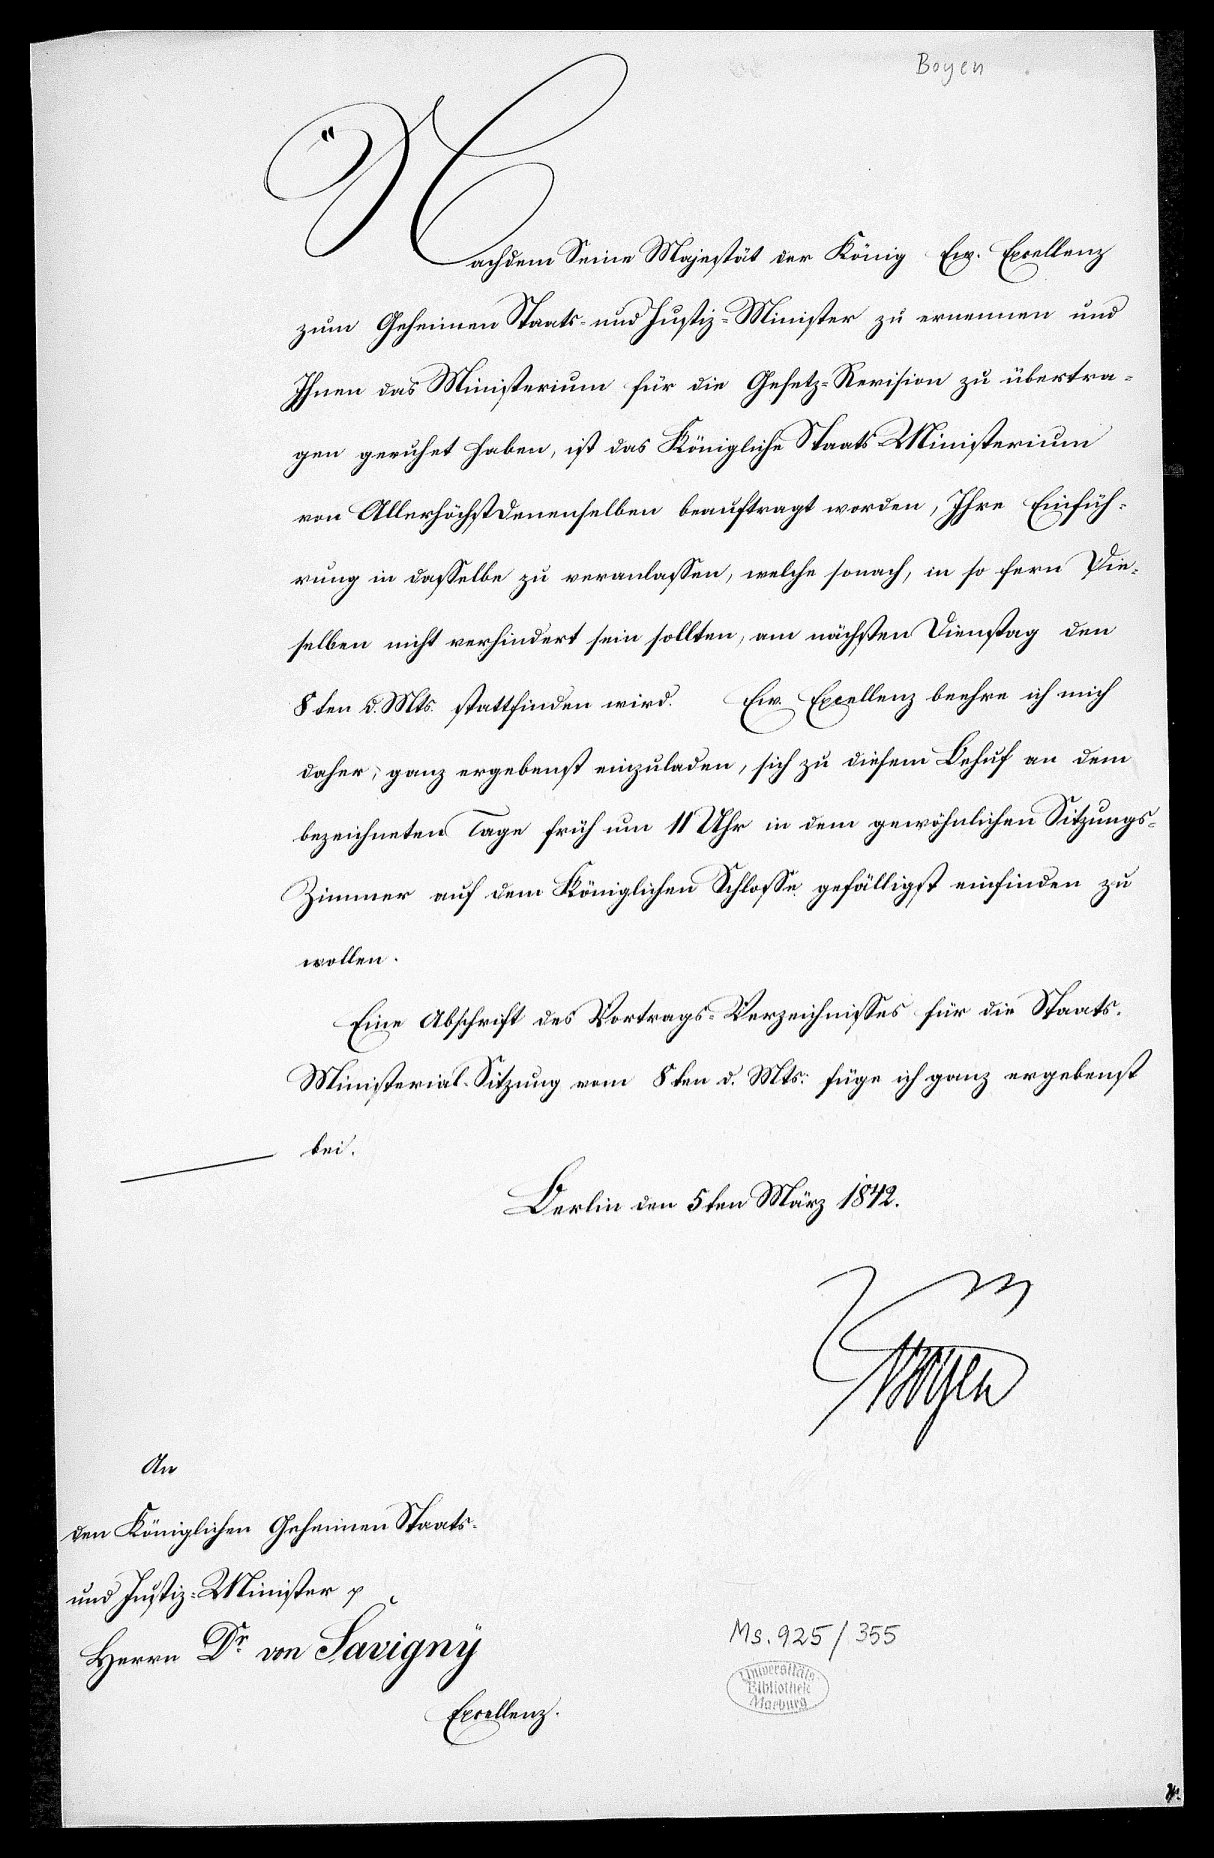 Boyen
Nachdem Seine Majestät der König Ew. Excellenz
zum Geheimen Staats- und Justiz-Minister zu ernennen und
Ihnen das Ministerium für die Gesetz-Revision zu übertra-
gen geruhet haben, ist das Königliche Staats-Ministerium
von Allerhöchstdenenselben beauftragt worden, Ihre Einfüh-
rung in dasselbe zu veranlassen, welche sonach, in so fern Die-
selben nicht verhindert sein sollten, am nächsten Dienstag den
8ten d. Mts. stattfinden wird. Ew. Excellenz beehre ich mich
daher, ganz ergebenst einzuladen, sich zu diesem Behuf an dem
bezeichneten Tage früh um 11 Uhr in dem gewöhnlichen Sitzungs-
Zimmer auf dem Königlichen Schlosse gefälligst einfinden zu
wollen.
Eine Abschrift des Vortrags-Verzeichnisses für die Staats-
Ministerial-Sitzung vom 8ten d. Mts. füge ich ganz ergebenst
bei.
Berlin den 5ten März 1842.
Boyen
An
den Königlichen Geheimen Staats-
und Justiz-Minister p
Herrn Dr. von Savigny
Excellenz.
Ms. 925/355
Universitäts
Bibliothek
Marburg